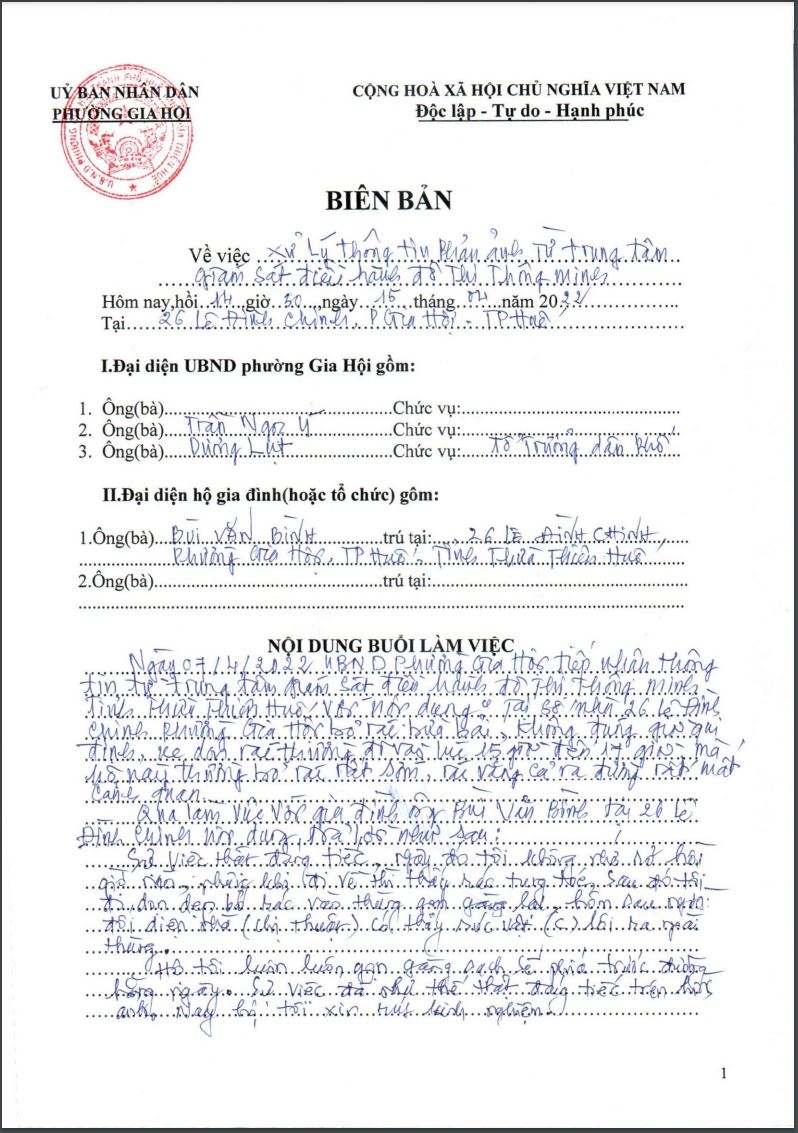 UỶ BAN NHÂN DÂN
PHƯỜNG GIA HỘI
CỘNG HOÀ XÃ HỘI CHỦ NGHĨA VIỆT NAM
Độc lập - Tự do - Hạnh phúc
BIÊN BẢN
Về việc xử lý thông tin phản ánh từ trung tâm
giám sát điều hành đô thị thông minh
Hôm nay,hồi 14 giờ 30, ngày 15 tháng 04 năm 2022
Tại 26 Lê Đình Chinh, P Gia Hội - TP Huế
I.Đại diện UBND phường Gia Hội gồm:
1. Ông(bà) Chức vụ:
2. Ông(bà) Trần Ngọc Ý Chức vụ:
3. Ông(bà) Dương Lụt Chức vụ: Tổ trưởng dân phố
II.Đại diện hộ gia đình(hoặc tổ chức) gôm:
1.Ông(bà) BÙI VĂN BÌNH trú tại: 26 LÊ ĐÌNH CHINH,
Phường Gia Hội, TP Huế, Tỉnh Thừa Thiên Huế
2.Ông(bà) trú tại:
NỘI DUNG BUỔI LÀM VIỆC
Ngày 07/4/2022 UBND Phường Gia Hội tiếp nhận thông
tin từ trung tâm giám sát điều hành đô thị thông minh
tỉnh Thừa Thiên Huế, với nội dung " Tại số nhà 26 Lê Đình
Chinh phường Gia Hội bỏ rác bừa bãi, không đúng giờ quy
định, xe dọn rác thường đi vào lúc 15 giờ đến 17 giờ, mà
hộ này thường bỏ rác rất sớm, rác văng cả ra đường rất mất
cảnh quan.
Qua làm việc với gia đình ông Bùi Văn Bình tại 26 Lê
Đình Chinh nội dung trả lời như sau:
Sự việc thật đáng tiếc, ngày đó tôi không nhớ rõ hồi
giờ nào, nhưng khi đi về thì thấy rác tung toé, sau đó tôi
đi dọn dẹp bỏ rác vào thùng gọn gàng lại, hôm sau người
đối diện nhà (chị Thuận) có thấy súc vật (C) lôi ra ngoài
thùng.
Hộ tôi luôn luôn gọn gàng sạch sẽ phía trước đường
hằng ngày. Sự việc đã như thế thật đáng tiếc trên hình
ảnh. Nay hộ tôi xin rút kinh nghiệm.
1